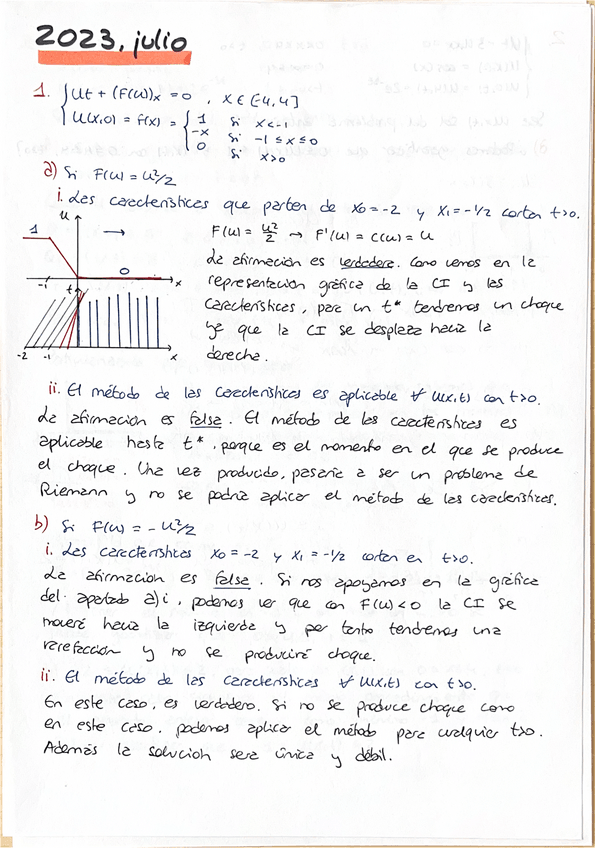 2023, julio
1. { Ut + (F(u))x = 0 , x ∈ [-4,4]
U(x,0) = f(x) = { 1 si x<-1
-x si -1 ≤ x ≤ 0
0 si x>0
a) Si F(u) = u²/2
i. Las características que parten de x0 = -2 y x1 = -1/2 cortan t>0.
F(u) = u²/2 → F'(u) = c(u) = u
La afirmación es verdadera. Como vemos en la
representación gráfica de la CI y las
características, para un t* tendremos un choque
ya que la CI se desplaza hacia la
derecha.
u
1
0
-1
x
t
-2
-1
x
ii. El método de las características es aplicable ∀ u(x,t) con t>0.
La afirmación es falsa. El método de las características es
aplicable hasta t*, porque es el momento en el que se produce
el choque. Una vez producido, pasaría a ser un problema de
Riemann y no se podría aplicar el método de las características.
b) Si F(u) = -u²/2
i. Las características x0 = -2 y x1 = -1/2 cortan en t>0.
La afirmación es falsa. Si nos apoyamos en la gráfica
del apartado a)i, podemos ver que con F(u)<0 la CI se
moverá hacia la izquierda y por tanto tendremos una
rarefacción y no se producirá choque.
ii. El método de las características ∀ u(x,t) con t>0.
En este caso, es verdadero. Si no se produce choque como
en este caso, podemos aplicar el método para cualquier t>0.
Además la solución será única y débil.